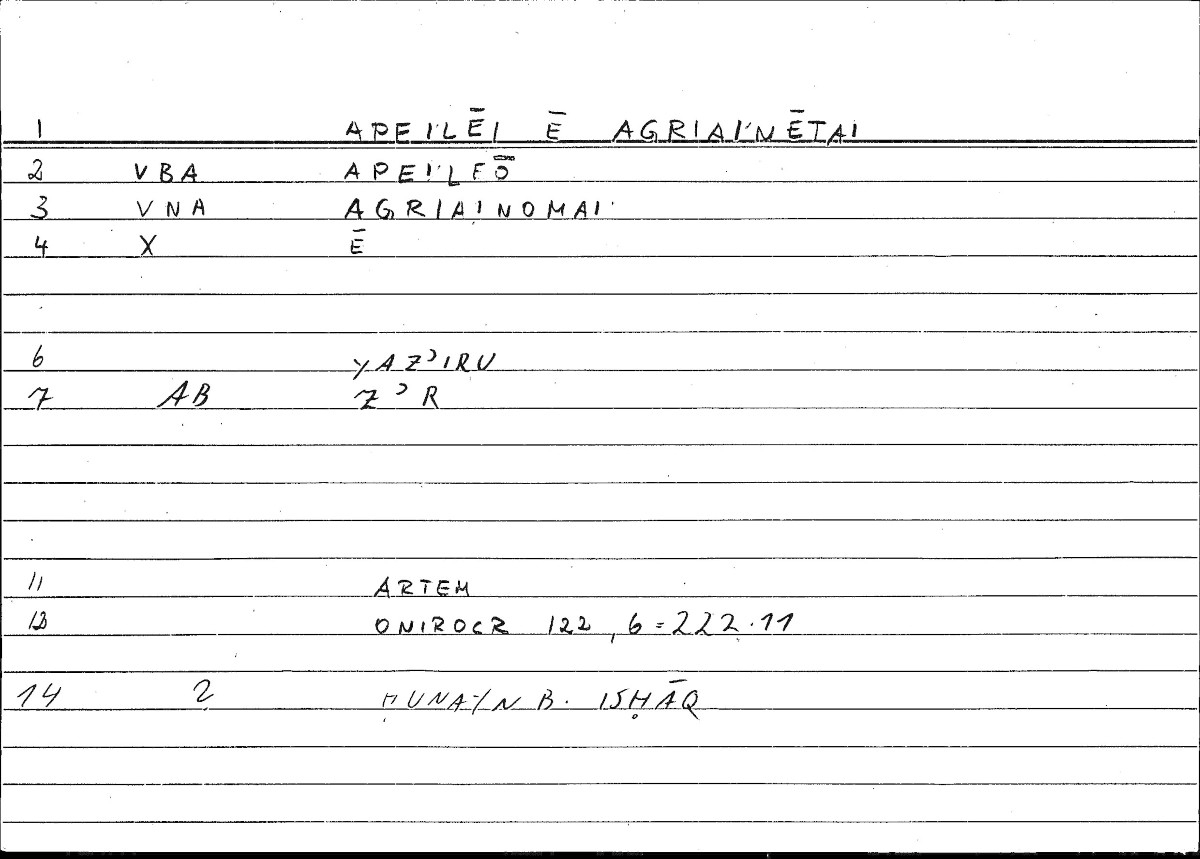 1 APEI'LĒI Ē AGRIAI'NĒTAI
2 VBA APEI'LEŌ
3 VNA AGRIAINOMAI
4 X Ē
6 YAZʾIRU
7 AB ZʾR
11 ARTEM
12 ONIROCR 122, 6=222.11
14 2 ḤUNAYN B. ISḤĀQ